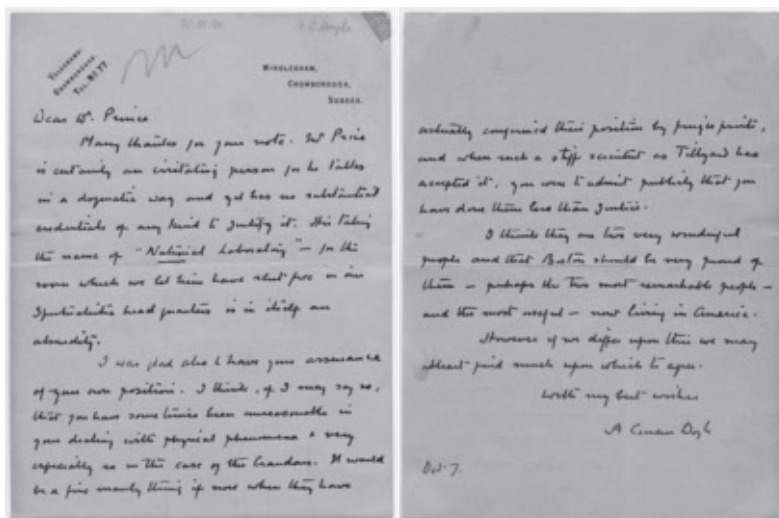 A C Doyle
TELEGRAMS:
CROWBOROUGH.
TEL. NO 77.
WINDLESHAM,
CROWBOROUGH,
SUSSEX.
Dear Dr. Prince
Many thanks for your note. Mr Price
is certainly an irritating person for he talks
in a dogmatic way and yet has no substantial
credentials of any kind to justify it. His taking
the name of "National Laboratory" – for the
room which we let him have rent free in our
Spiritualistic head quarters is in itself an
absurdity.
I was glad also to have your assurance
of your own position. I think, if I may say so,
that you have sometimes been unreasonable in
your dealing with physical phenomena & very
especially so in the case of the Crandons. It would
be a fine manly thing if now when they have
actually confirmed their position by finger prints,
and when such a stiff scientist as Tillyard has
accepted it, you were to admit publicly that you
have done them less than justice.
I think they are two very wonderful
people and that Boston should be very proud of
them – perhaps the two most remarkable people –
and the most useful – now living in America.
However if we differ upon this we may
at least find much upon which to agree.
With my best wishes
A Conan Doyle
7.